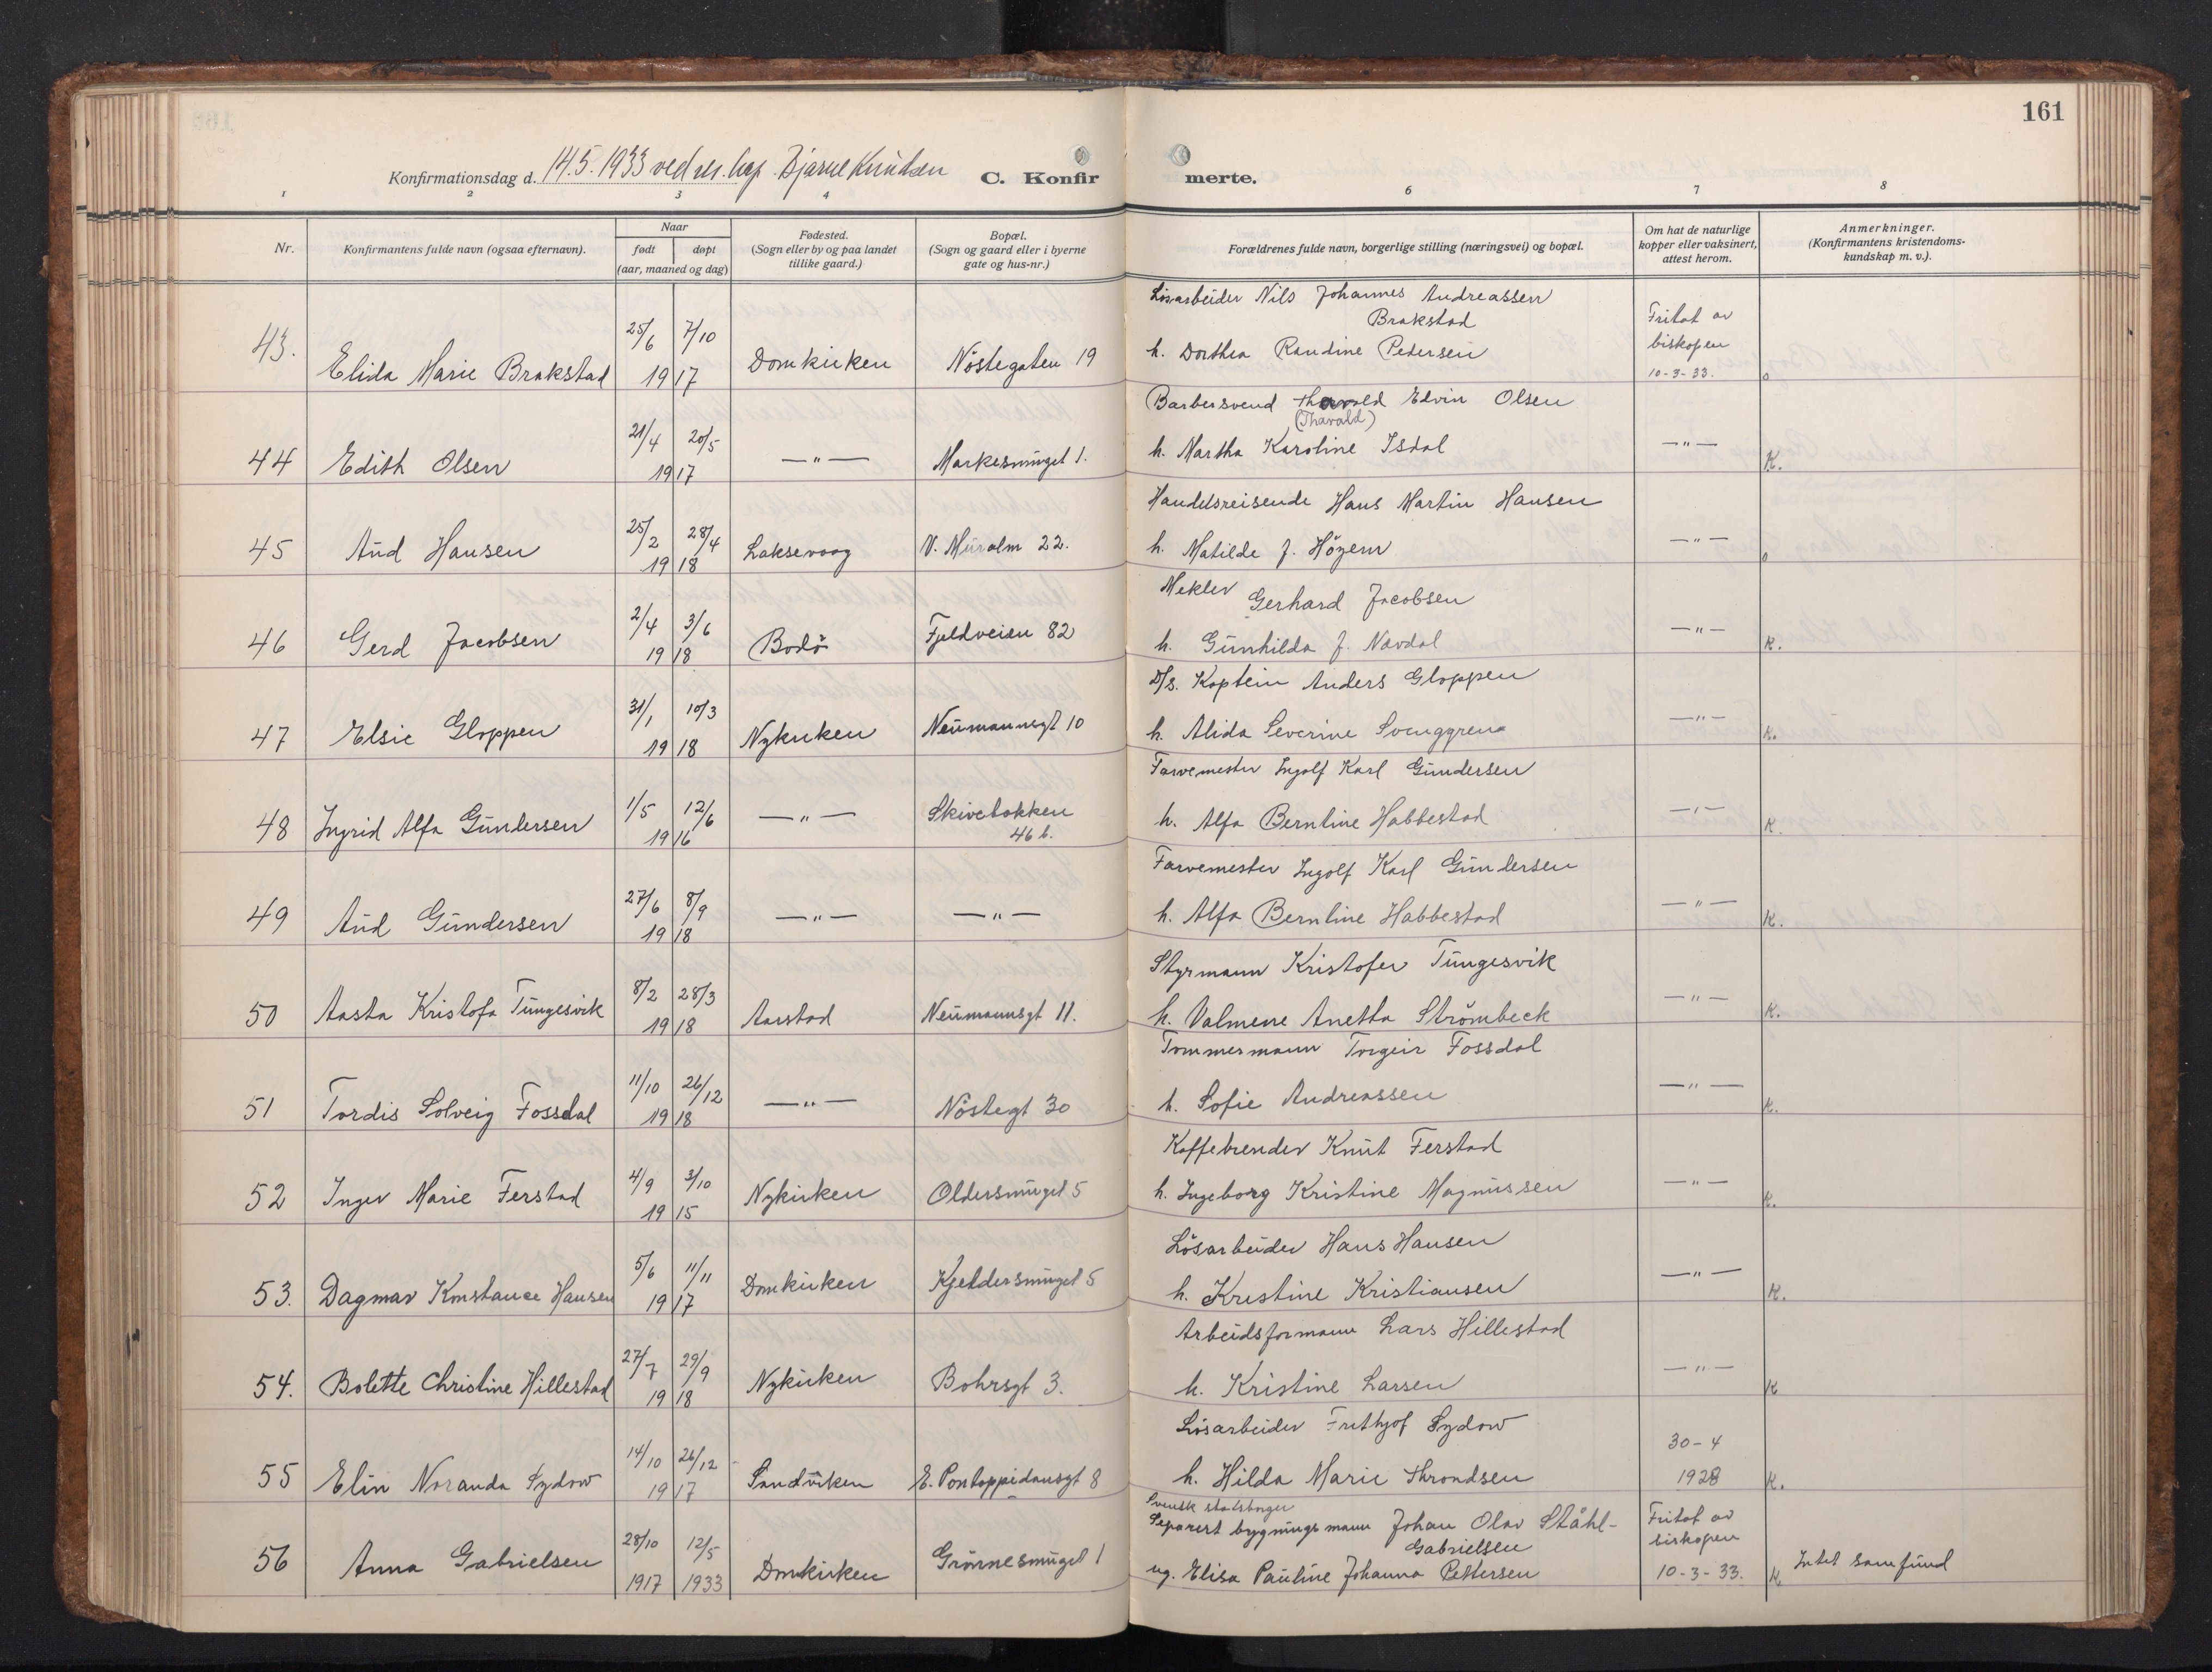 161
Konfirmationsdag d. 14.5.1933 ved res. kap. Bjarne Knudsen C. Konfirmerte.
1 2 3 4 6 7 8
Nr. Konfirmantens fulde navn (ogsaa efternavn). Naar født døpt (aar, maaned og dag) Fødested. (Sogn eller by og paa landet tillike gaard.) Bopæl. (Sogn og gaard eller i byerne gate og hus-nr.) Forældrenes fulde navn, borgerlige stilling (næringsvei) og bopæl. Om hat de naturlige kopper eller vaksinert, attest herom. Anmerkninger. (Konfirmantens kristendomskundskap m. v.).
Løsarbeider Nils Johannes Andreassen
Brakstad
43. Elida Marie Brakstad 25/6 7/10 1917 Domkirken Nöstegaten 19 h. Dorthea Randine Pedersen Fritat av biskopen 10-3-33. o
Barbersvend Thorvald Edvin Olsen
(Thavald)
44 Edith Olsen 21/4 20/5 1917 —"— Markesmuget 1. h. Martha Karoline Isdal —"— K.
Handelsreisende Hans Martin Hansen
45 Aud Hansen 25/2 28/4 1918 Laksevaag V. Muralm 22. h. Matilde f. Högem —"— o
Mekler Gerhard Jacobsen
46 Gerd Jacobsen 2/4 3/6 1918 Bodö Fjeldveien 82 h. Gunhilda f. Navdal —"— K.
D/s. Kaptein Anders Gloppen
47 Elsie Gloppen 31/1 10/3 1918 Nykirken Neumannsgt 10 h. Alida Severine Svenggren —"— K.
Farvemester Ingolf Karl Gundersen
48 Ingrid Alfa Gundersen 1/5 12/6 1916 —"— Skivebakken 46 b. h. Alfa Berntine Habbestad —"— K.
Farvemester Ingolf Karl Gundersen
49 Aud Gundersen 27/6 8/9 1918 —"— —"— h. Alfa Berntine Habbestad —"— K.
Styrmann Kristofer Tungesvik
50 Aasta Kristofa Tungesvik 8/2 28/3 1918 Aarstad Neumannsgt 11. h. Valmene Anetta Strömbeck —"— K.
Tömmermann Torgeir Fossdal
51 Tordis Solveig Fossdal 11/10 26/12 1918 —"— Nöstegt 30 h. Sofie Andreassen —"— K.
Kaffebrender Knut Ferstad
52 Inger Marie Ferstad 4/9 3/10 1915 Nykirken Oldersmuget 5 h. Ingeborg Kristine Magnussen —"— K.
Lösarbeider Hans Hansen
53. Dagmar Konstance Hansen 5/6 11/11 1917 Domkirken Kjeldersmuget 5 h. Kristine Kristiansen —"— K.
Arbeidsformann Lars Hillestad
54. Bolette Christine Hillestad 27/7 29/9 1918 Nykirken Bohrsgt 3. h. Kristine Larsen —"— K
Lösarbeider Frithjof Sydow
55 Elin Noranda Sydow 14/10 26/12 1917 Sandviken E. Pontoppidansgt 8 h. Hilda Marie Throndsen 30-4 1928 K.
Svensk statsborger
Separert bygningsmann Johan Olav Ståhl-
Gabrielsen
56 Anna Gabrielsen 28/10 1917 12/5 1933 Domkirken Grönnesmuget 1 ug. Elisa Pauline Johanna Pettersen Fritat av biskopen 10-3-33. K Intet samfund